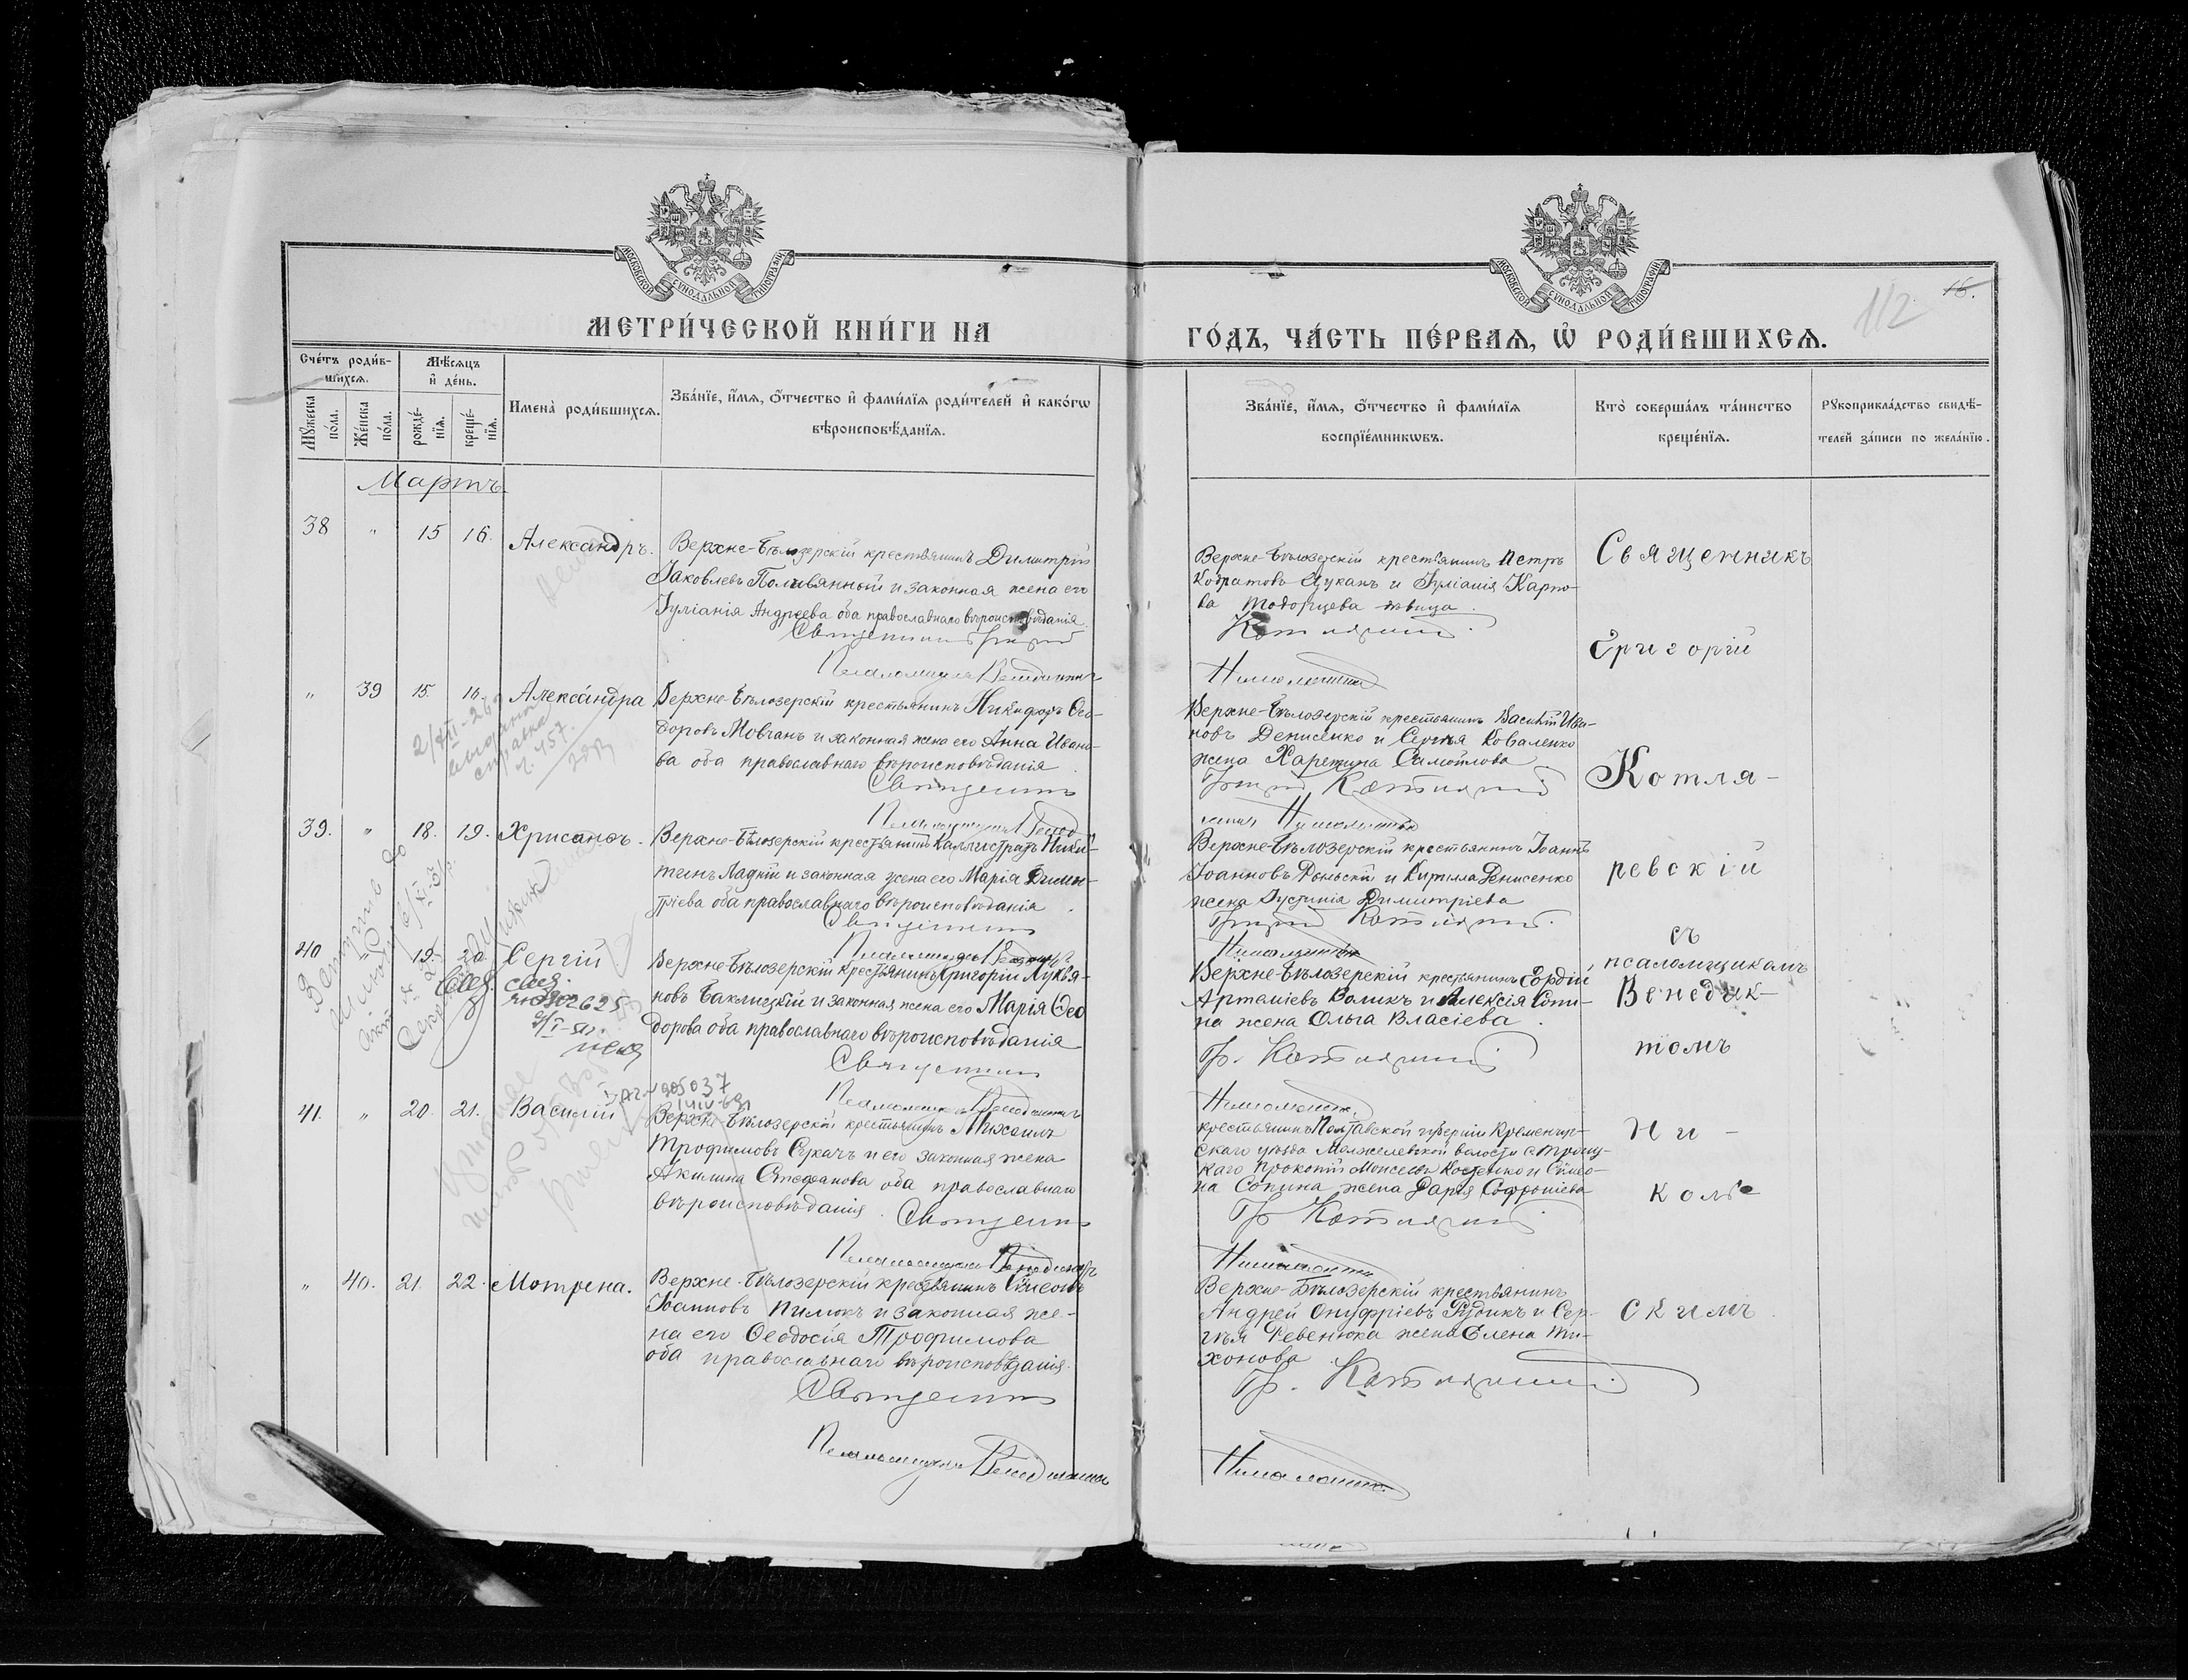 МОСКОВСКОЙ СѴНОДАЛЬНОЙ ТИПОГРАФІИ
МОСКОВСКОЙ СѴНОДАЛЬНОЙ ТИПОГРАФІИ
16.
112
МЕТРИ́ЧЕСКОЙ КНИ́ГИ НА
ГО́ДЪ, ЧА́СТЬ ПЕ́РВАѦ, Ѡ҆ РОДИ́ВШИХСѦ.
Сче́тъ роди́в-
шихсѧ.
Мѣ́сѧцъ
и҆ де́нь.
Мꙋ́жеска
по́ла.
Же́нска
по́ла.
рожде́-
нїѧ.
креще́-
нїѧ.
Имена̀ роди́вшихсѧ.
Зва́нїе, и҆́мѧ, ѻ҆́тчество и҆ фами́лїѧ роди́телей и҆ како́гѡ
вѣроисповѣ́данїѧ.
Зва́нїе, и҆́мѧ, ѻ҆́тчество и҆ фами́лїѧ
воспрїе́мникѡвъ.
Кто̀ соверша́лъ та́инство
креще́нїѧ.
Рꙋкоприкла́дство свидѣ́-
телей за́писи по жела́нїю.
Мартъ
38 " 15 16. Александръ.
Верхне-Бѣлозерскій крестьянинъ Димитрій
Іаковлевъ Поливянный и законная жена его
Іуліанія Андреева оба православнаго вѣроисповѣданія.
Священникъ Григорій
Псаломщикъ Венедиктъ
Верхне-Бѣлозерскій крестьянинъ Петръ
Кодратовъ Цуканъ и Іуліанія Карпо-
ва Тодорцева дѣвица.
Котляревскій
" 39 15. 16. Александра
Верхне-Бѣлозерскій крестьянинъ Никифоръ Ѳео-
доровъ Мовчанъ и законная жена его Анна Ивано-
ва оба православнаго вѣроисповѣданія.
Священникъ
Псаломщикъ Венед
Верхне-Бѣлозерскій крестьянинъ Василій Ива-
новъ Денисенко и Сергѣя Коваленко
жена Харетина Самойлова
Григорій Котляревскій
39. " 18. 19. Хрисанѳъ.
Верхне-Бѣлозерскій крестьянинъ Каллистратъ Ники-
тинъ Ладній и законная жена его Марія Дими-
тріева оба православнаго вѣроисповѣданія.
Священникъ
Псаломщикъ Венедиктъ
Верхне-Бѣлозерскій крестьянинъ Іоаннъ
Іоанновъ Рольскій и Кирилла Денисенко
жена Іустинія Димитріева
Григорій Котляревскій.
40 " 19. 20. Сергій.
Верхне-Бѣлозерскій крестьянинъ Григорій Лукья-
новъ Баклицкій и законная жена его Марія Ѳео
дорова оба православнаго вѣроисповѣданія
Священникъ
Псаломщикъ Венедиктъ
Верхне-Бѣлозерскій крестьянинъ Гордій
Артеміевъ Воликъ и Алексія Сопи-
на жена Ольга Власіева.
Гр. Котляревскій
41. " 20. 21. Василій
Верхне-Бѣлозерскій крестьянинъ Михаилъ
Трофимовъ Сукачъ и его законная жена
Акилина Стефанова оба православнаго
вѣроисповѣданія. Священникъ
Псаломщикъ Венедиктъ
крестьянинъ Полтавской губерніи Кременчуг-
скаго уѣзда Манжелевской волости
Прокопій Моисеевъ Костенко и Симео-
на Сопина жена Дарія Софроніева
Гр Котляревскій
" 40. 21. 22. Мотрена.
Верхне-Бѣлозерскій крестьянинъ Симеонъ
Іоанновъ Пилюкъ и законная же-
на его Ѳеодосія Трофимова
оба православнаго вѣроисповѣданія.
Священникъ
Псаломщикъ Венедиктъ
Верхне-Бѣлозерскій крестьянинъ
Андрей Онуфріевъ Рудикъ и Сер-
гѣя Ревенюка жена Елена Ти-
хонова.
Гр. Котляревскій
Священникъ
Григорій
Котля-
ревскій
съ
псаломщикомъ
Венедик-
томъ
Ни-
коль-
скимъ